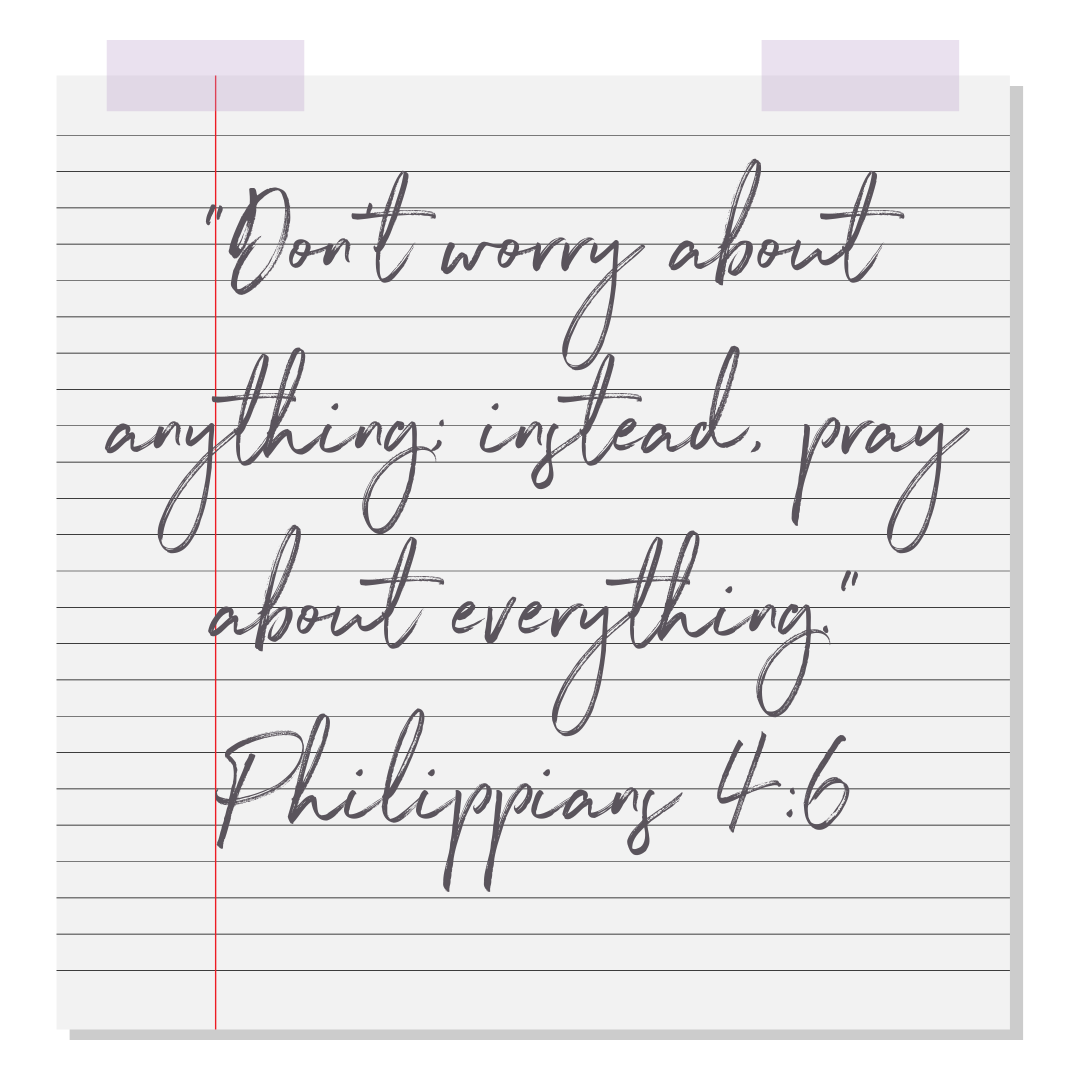 "Don't worry about
anything; instead, pray
about everything."
Philippians 4:6